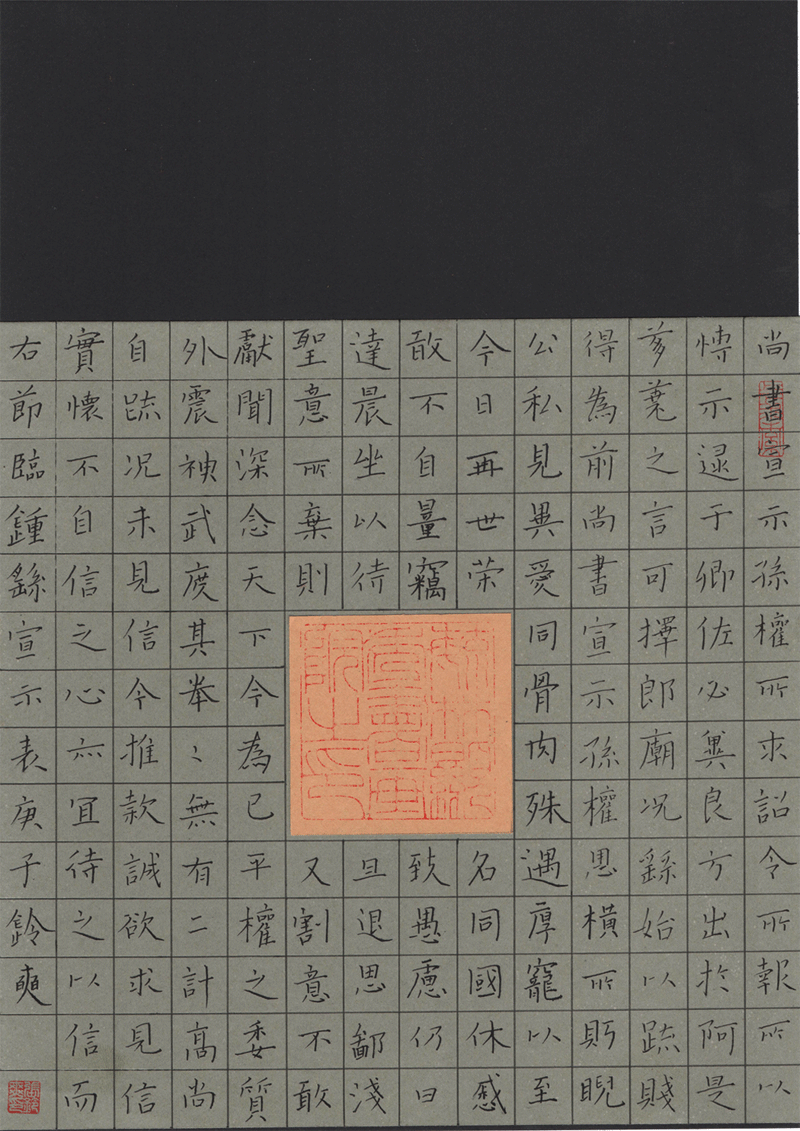 尚書宣示孫權所求詔令所報所以
博示逮于卿佐必冀良方出於阿是
芻蕘之言可擇郎廟況繇始以疏賤
得為前尚書宣示孫權思橫所眄睨
公私見異愛同骨肉殊遇厚寵以至
今日再世荣名同國休慼
敢不自量竊致愚慮仍日
達晨坐以待旦退思鄙淺
聖意所棄則又割意不敢
獻聞深念天下今為已平權之委質
外震神武度其拳〻無有二計高尚
自疏況未見信今推款誠欲求見信
實懷不自信之心亦宜待之以信而
右節臨鍾繇宣示表庚子鈴奭